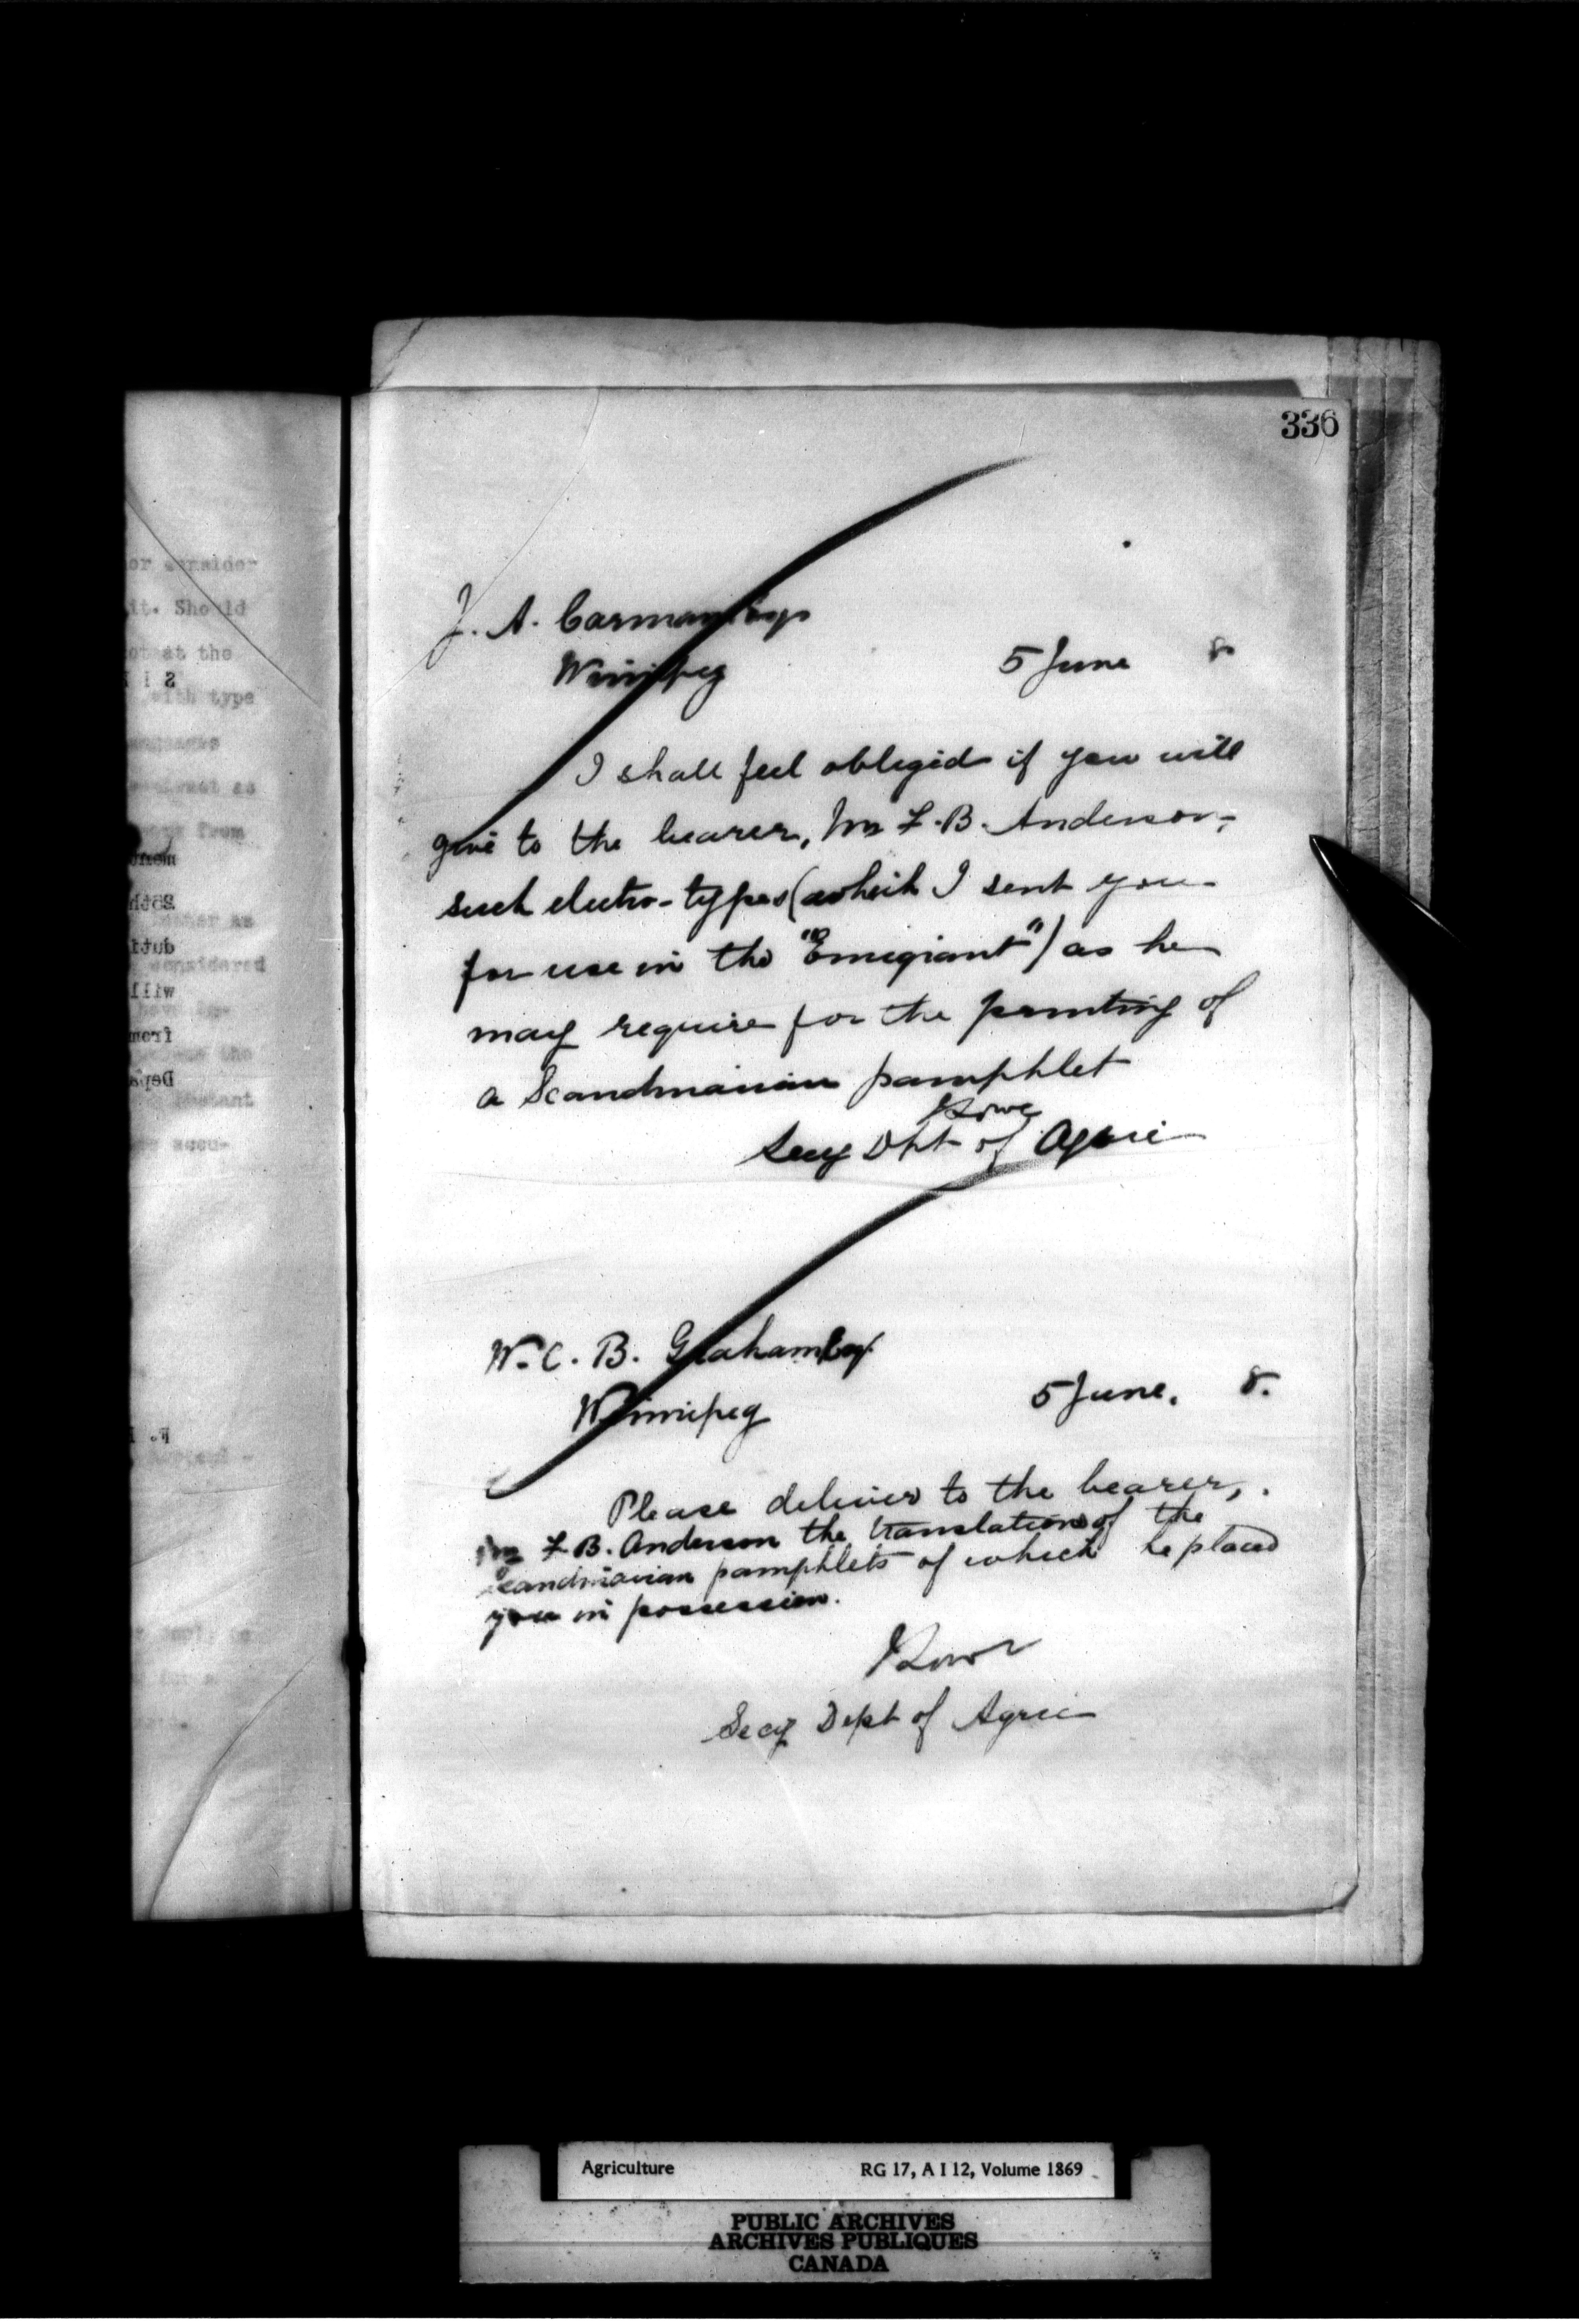 336
J. A. Carman Esq
Winnipeg 5 June 8.
I shall feel obliged if you will
give to the bearer, Mr F. B. Anderson,
such electro-types (which I sent you
for use in the "Emigrant") as he
may require for the printing of
a Scandinavian pamphlet
JLowe
Secy Dpt of Agric
W. C. B. Graham Esq.
Winnipeg 5 June. 8.
Please deliver to the bearer,
Mr F. B. Anderson the translations of the
Scandinavian pamphlets of which he placed
you in possession.
JLowe
Secy Dept of Agric
or consider
it. Should
ot at the
with type
from
considered
the
Agriculture RG 17, A I 12, Volume 1869
PUBLIC ARCHIVES
ARCHIVES PUBLIQUES
CANADA